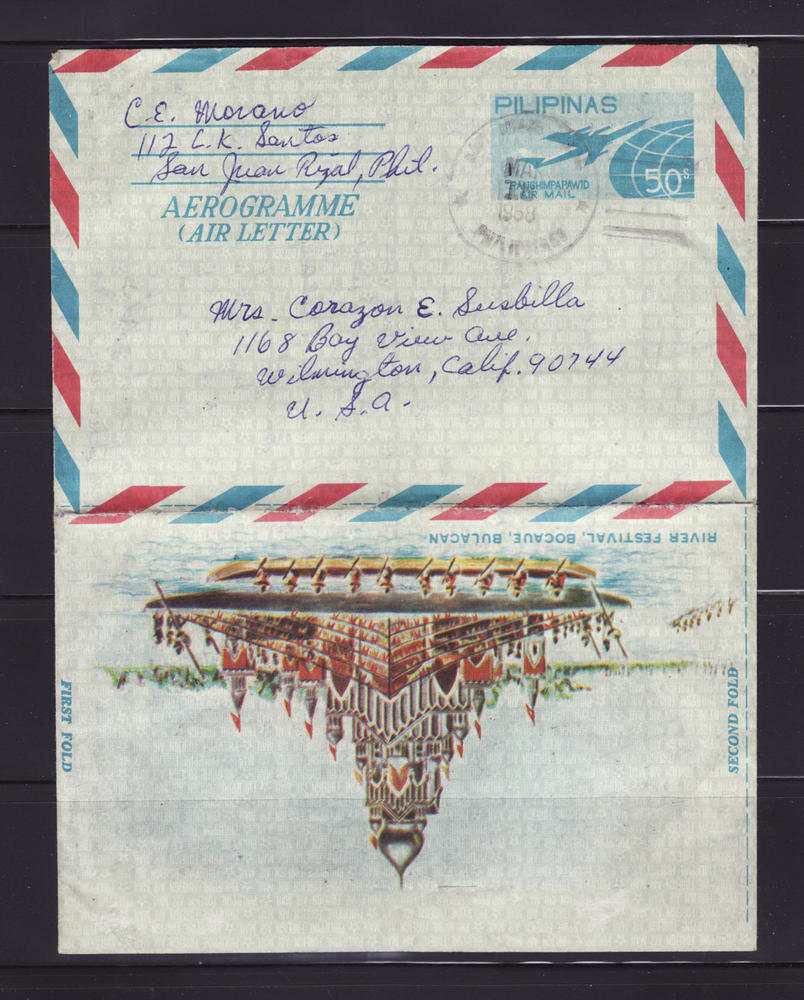 C. E. Morano
112 C. K. Santos
San Juan Rizal, Phil.
AEROGRAMME
(AIR LETTER)
PILIPINAS
PANGHIMPAPAWID
AIR MAIL
50s
MAR
1968
PHILIPPINES
Mrs. Corazon E. Susbilla
1168 Bay View Ave.
Wilmington, Calif. 90744
U. S. A.
RIVER FESTIVAL, BOCAUE, BULACAN
FIRST FOLD
SECOND FOLD